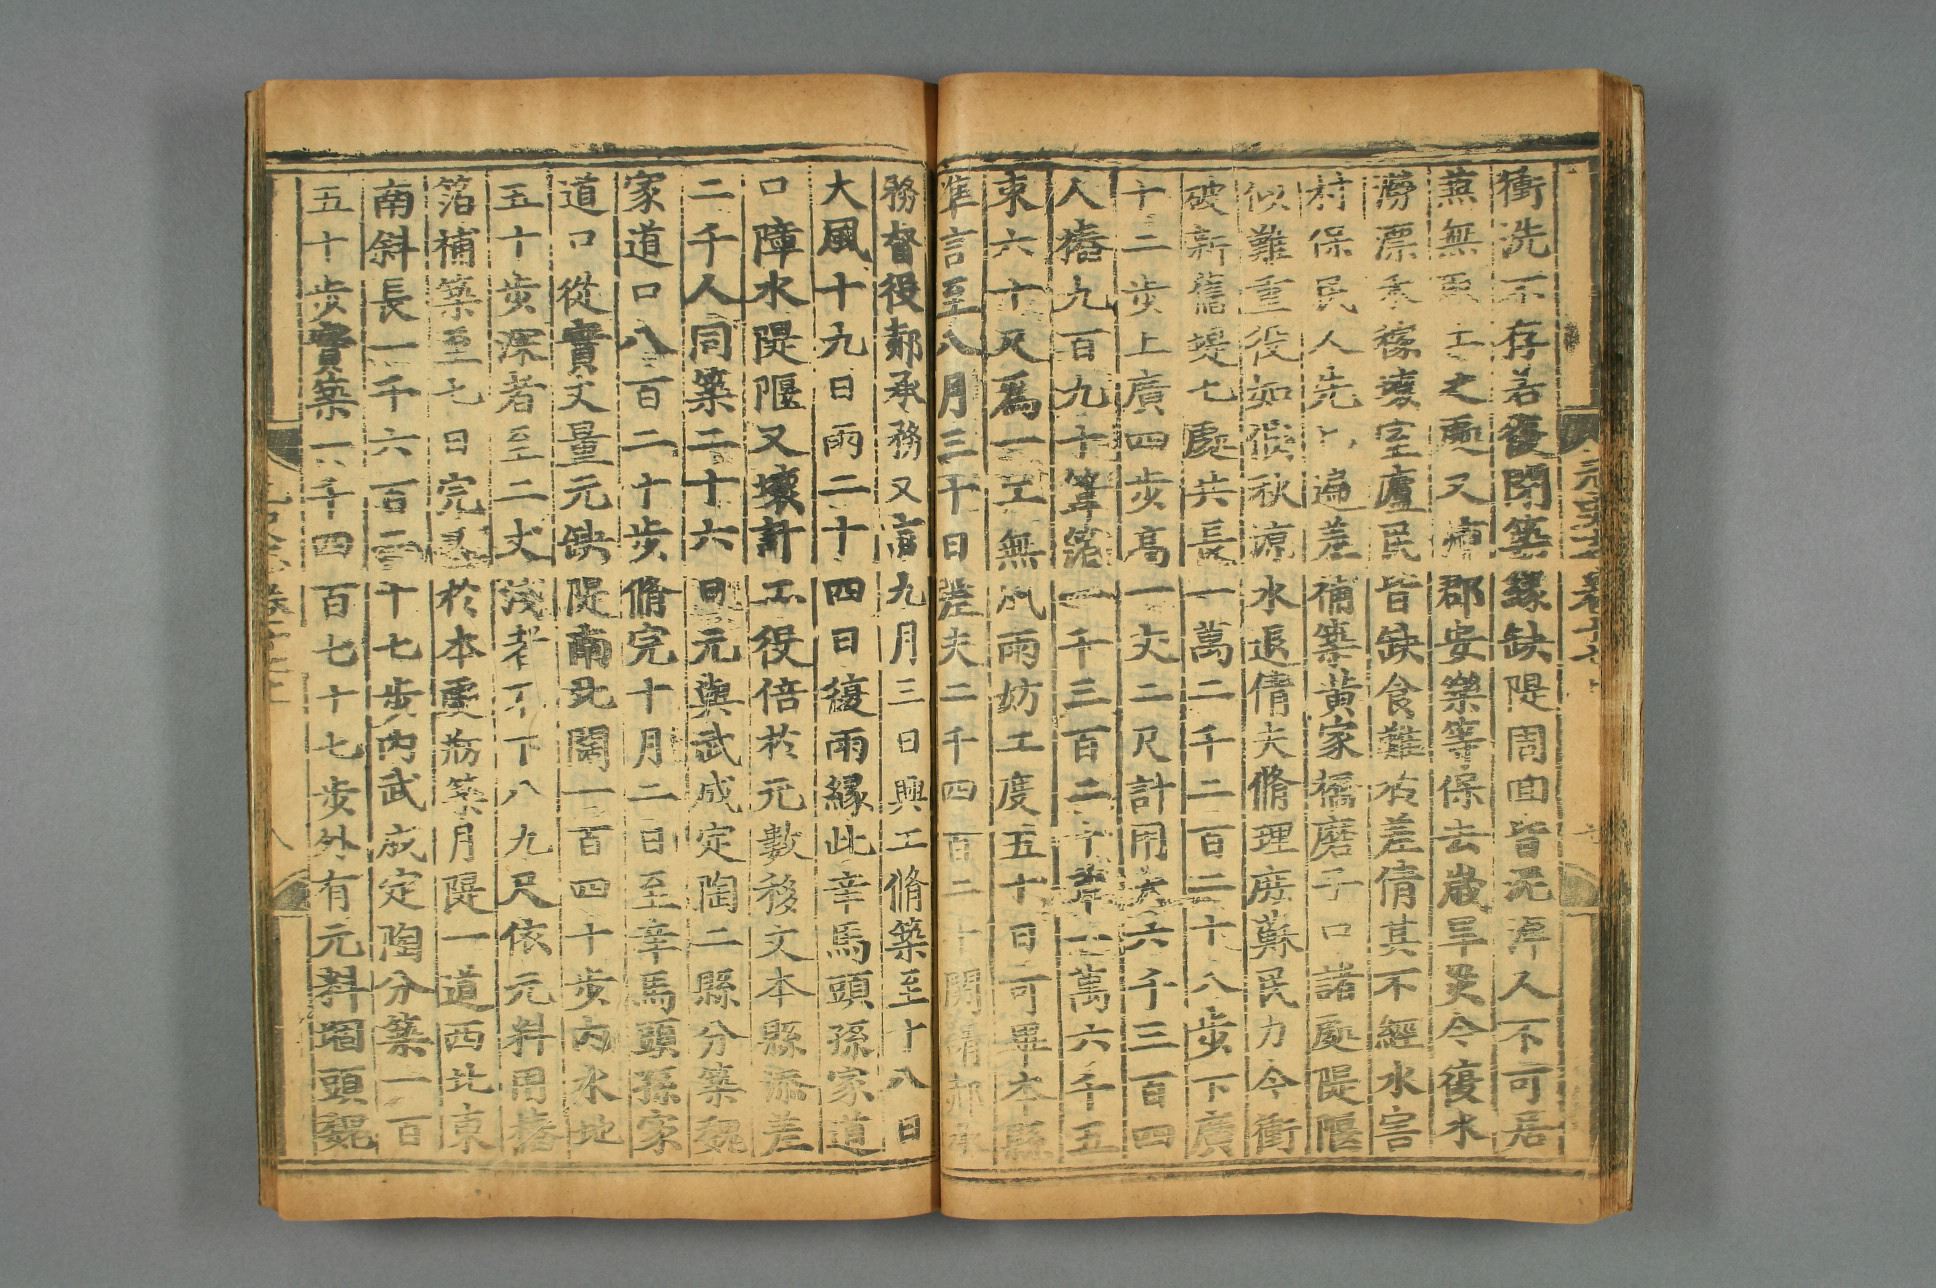 衝洗不存若復閉築緣缺隄周囬皆泥淖人不可居
蕪無取土之處又兼郡安樂等保去歲旱災今復水
澇漂禾稼壞室廬民皆缺食難於差倩其不經水害
村保民人先已遍差補築黃家橋磨子口諸處隄堰
似難重役如候秋凉水退倩夫脩理庶蘇民力今衝
破新舊堤七處共長一萬二千二百二十八步下廣
十二步上廣四步高一丈二尺計用夫六千三百四
人樁九百九十葦箔一千三百二十草一萬六千五
束六十尺爲一工無風雨妨工度五十日可畢本縣
準言至八月三十日差夫二千四百二十關請郝承
務督役郝承務又言九月三日興工脩築至十八日
大風十九日雨二十四日復雨緣此辛馬頭孫家道
口障水隄堰又壞計工役倍於元數移文本縣添差
二千人同築二十六日元與武成定陶二縣分築魏
家道口八百二十步脩完十月二日至辛馬頭孫家
道口從實丈量元缺隄南北闊一百四十步內水地
五十步深者至二丈淺者不下八九尺依元料用樁
箔補築至七日完又於本處剏築月隄一道西北東
南斜長一千六百二十七步內武成定陶分築一百
五十步實築一千四百七十七步外有元料堌頭魏